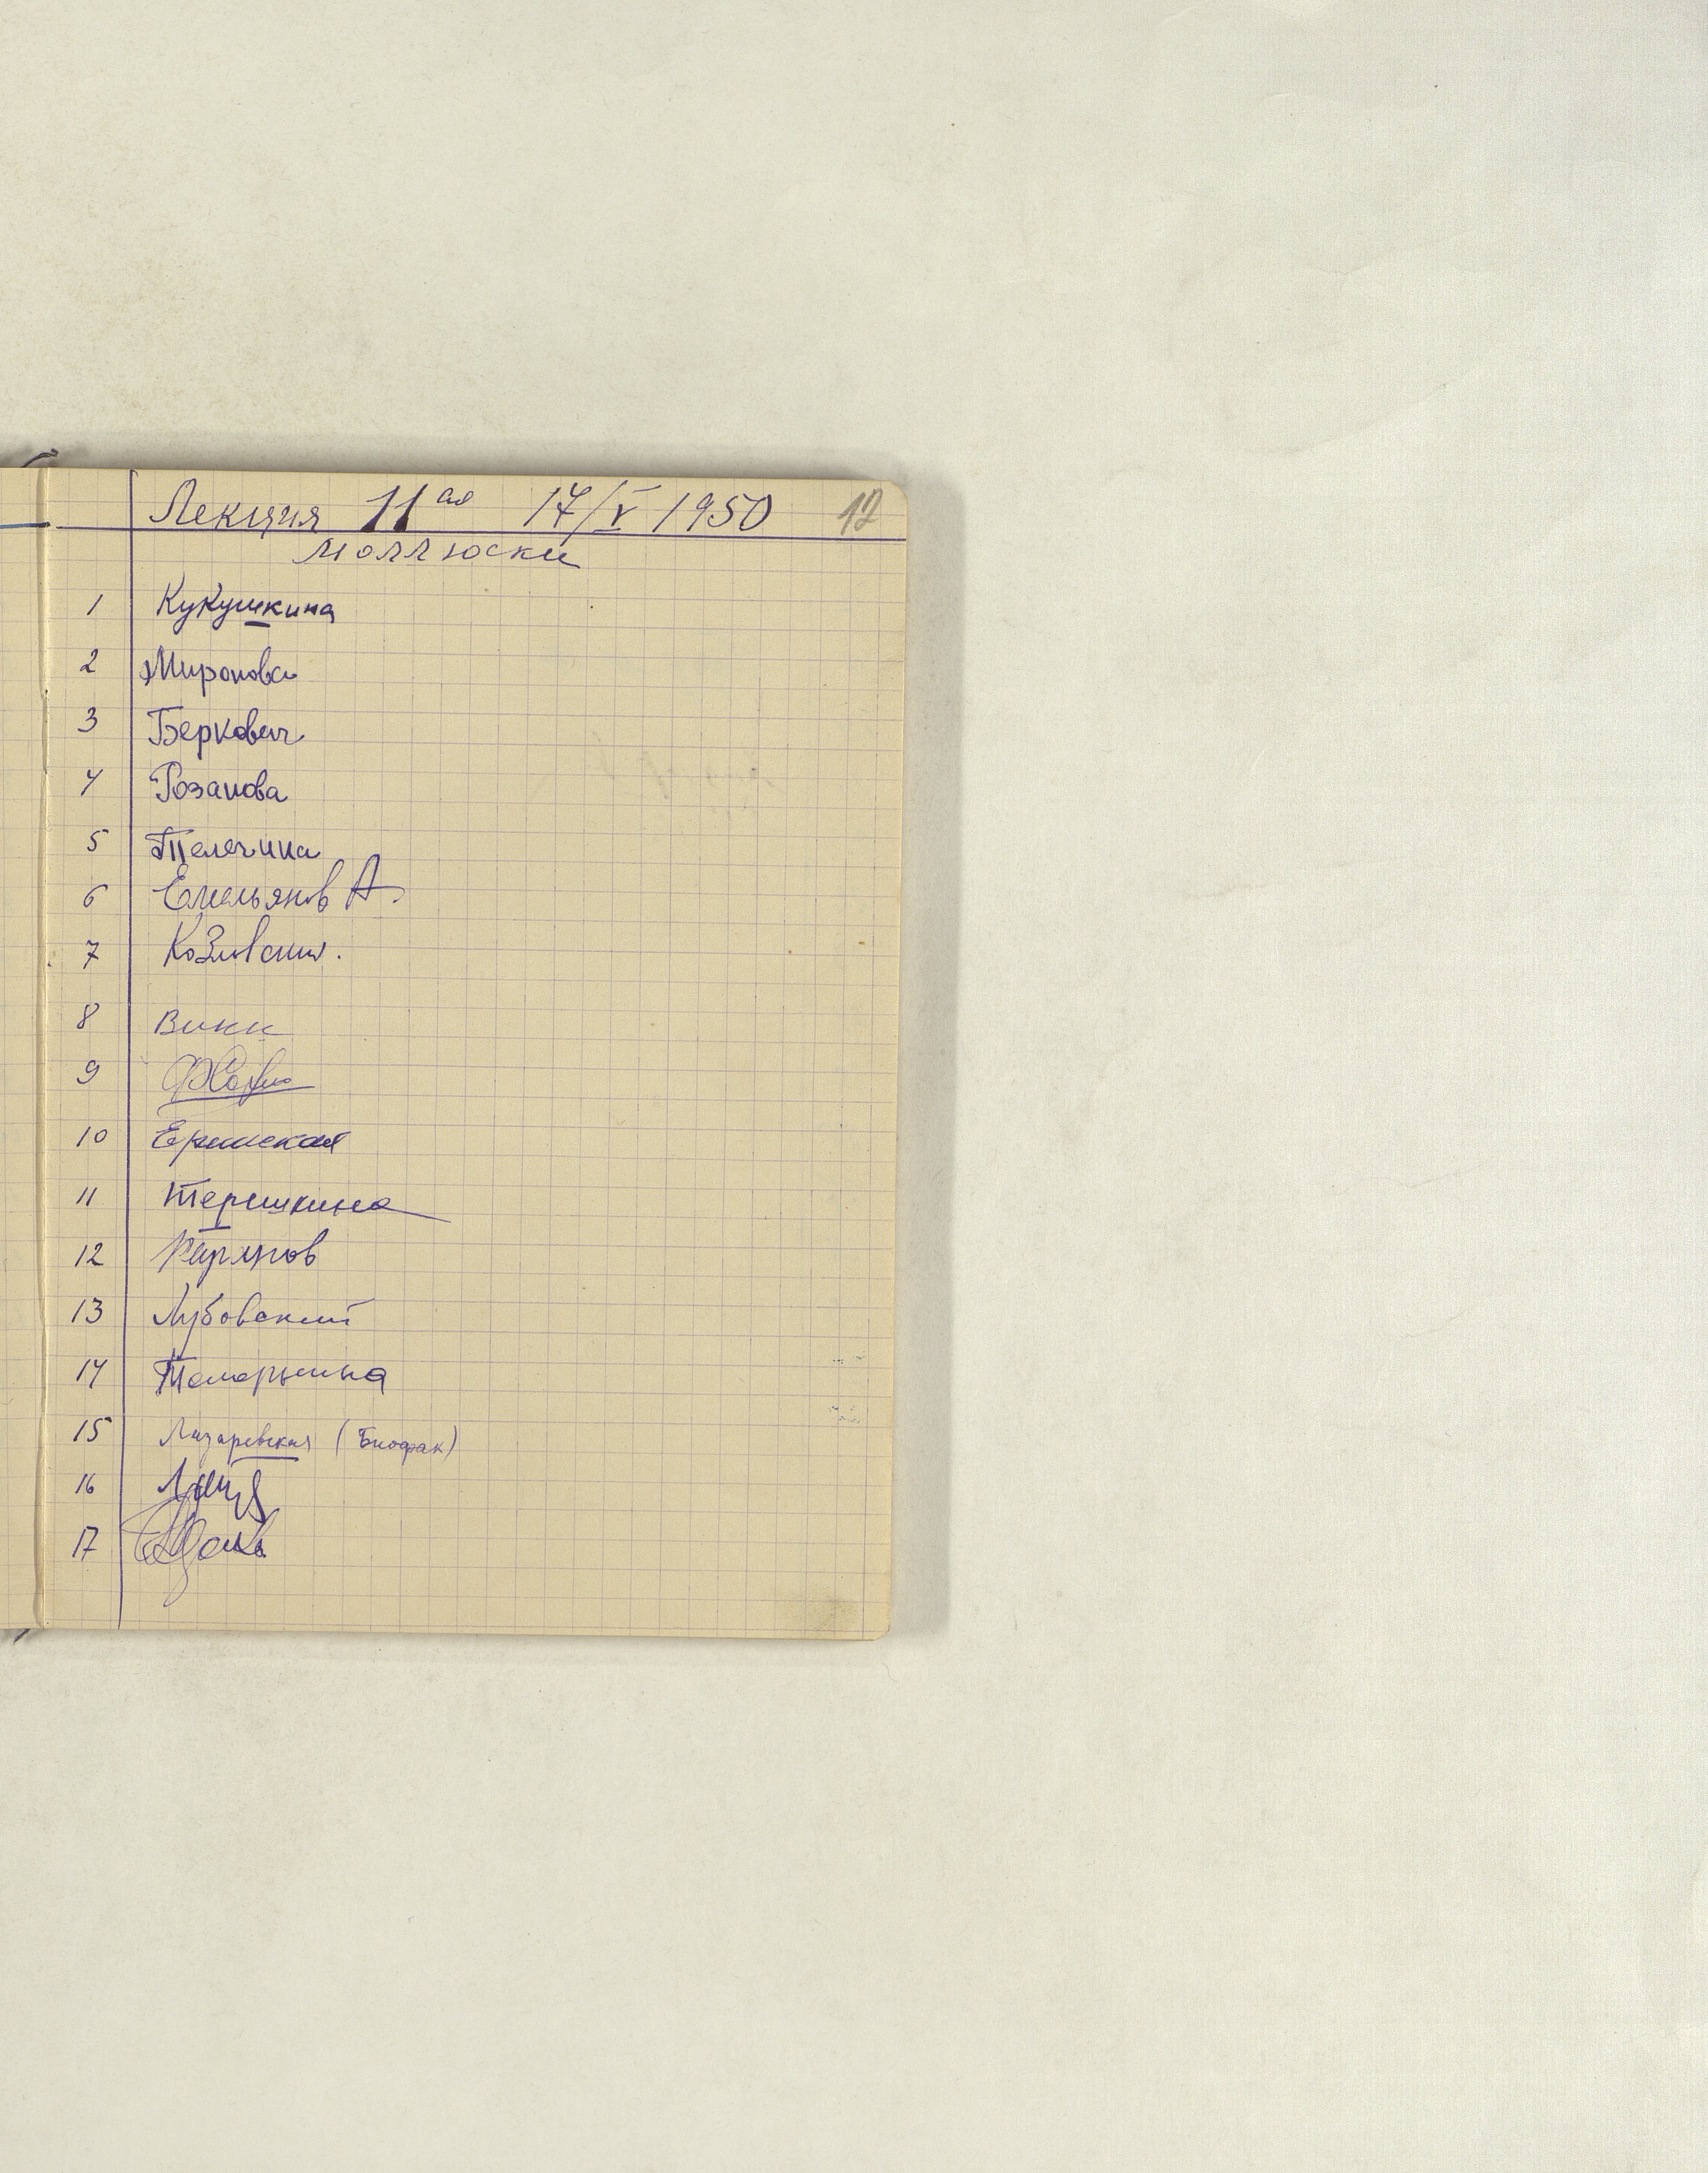 Лекция 11ая 17/V 1950 12
моллюски
1 Кукушкина
2 Миронова
3 Беркович
4 Розанова
5 Телегина
6 Емельянов А.
7 Козловский.
8 Винк
9
10 Ермская
11 Терешкина
12
13 Лубовский
14
15 Лазаревская (Биофак)
16
17